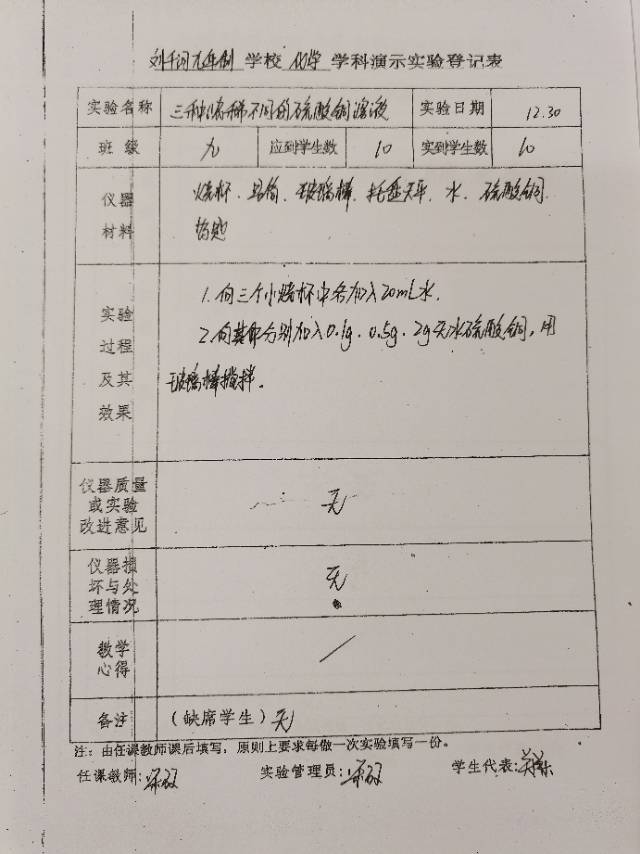 刘千河九年制 学校 化学 学科演示实验登记表
实验名称 三种浓稀不同的硫酸铜溶液 实验日期 12.30
班级 九 应到学生数 10 实到学生数 10
仪器材料 烧杯、量筒、玻璃棒、托盘天平、水、硫酸铜、
药匙
实验过程及其效果
1.向三个小烧杯中各加入20mL水.
2.向其中分别加入0.1g、0.5g、2g无水硫酸铜,用
玻璃棒搅拌。
仪器质量或实验改进意见 无
仪器损坏与处理情况 无
教学心得 /
备注 (缺席学生)无
注:由任课教师课后填写,原则上要求每做一次实验填写一份。
任课教师: 实验管理员: 学生代表: